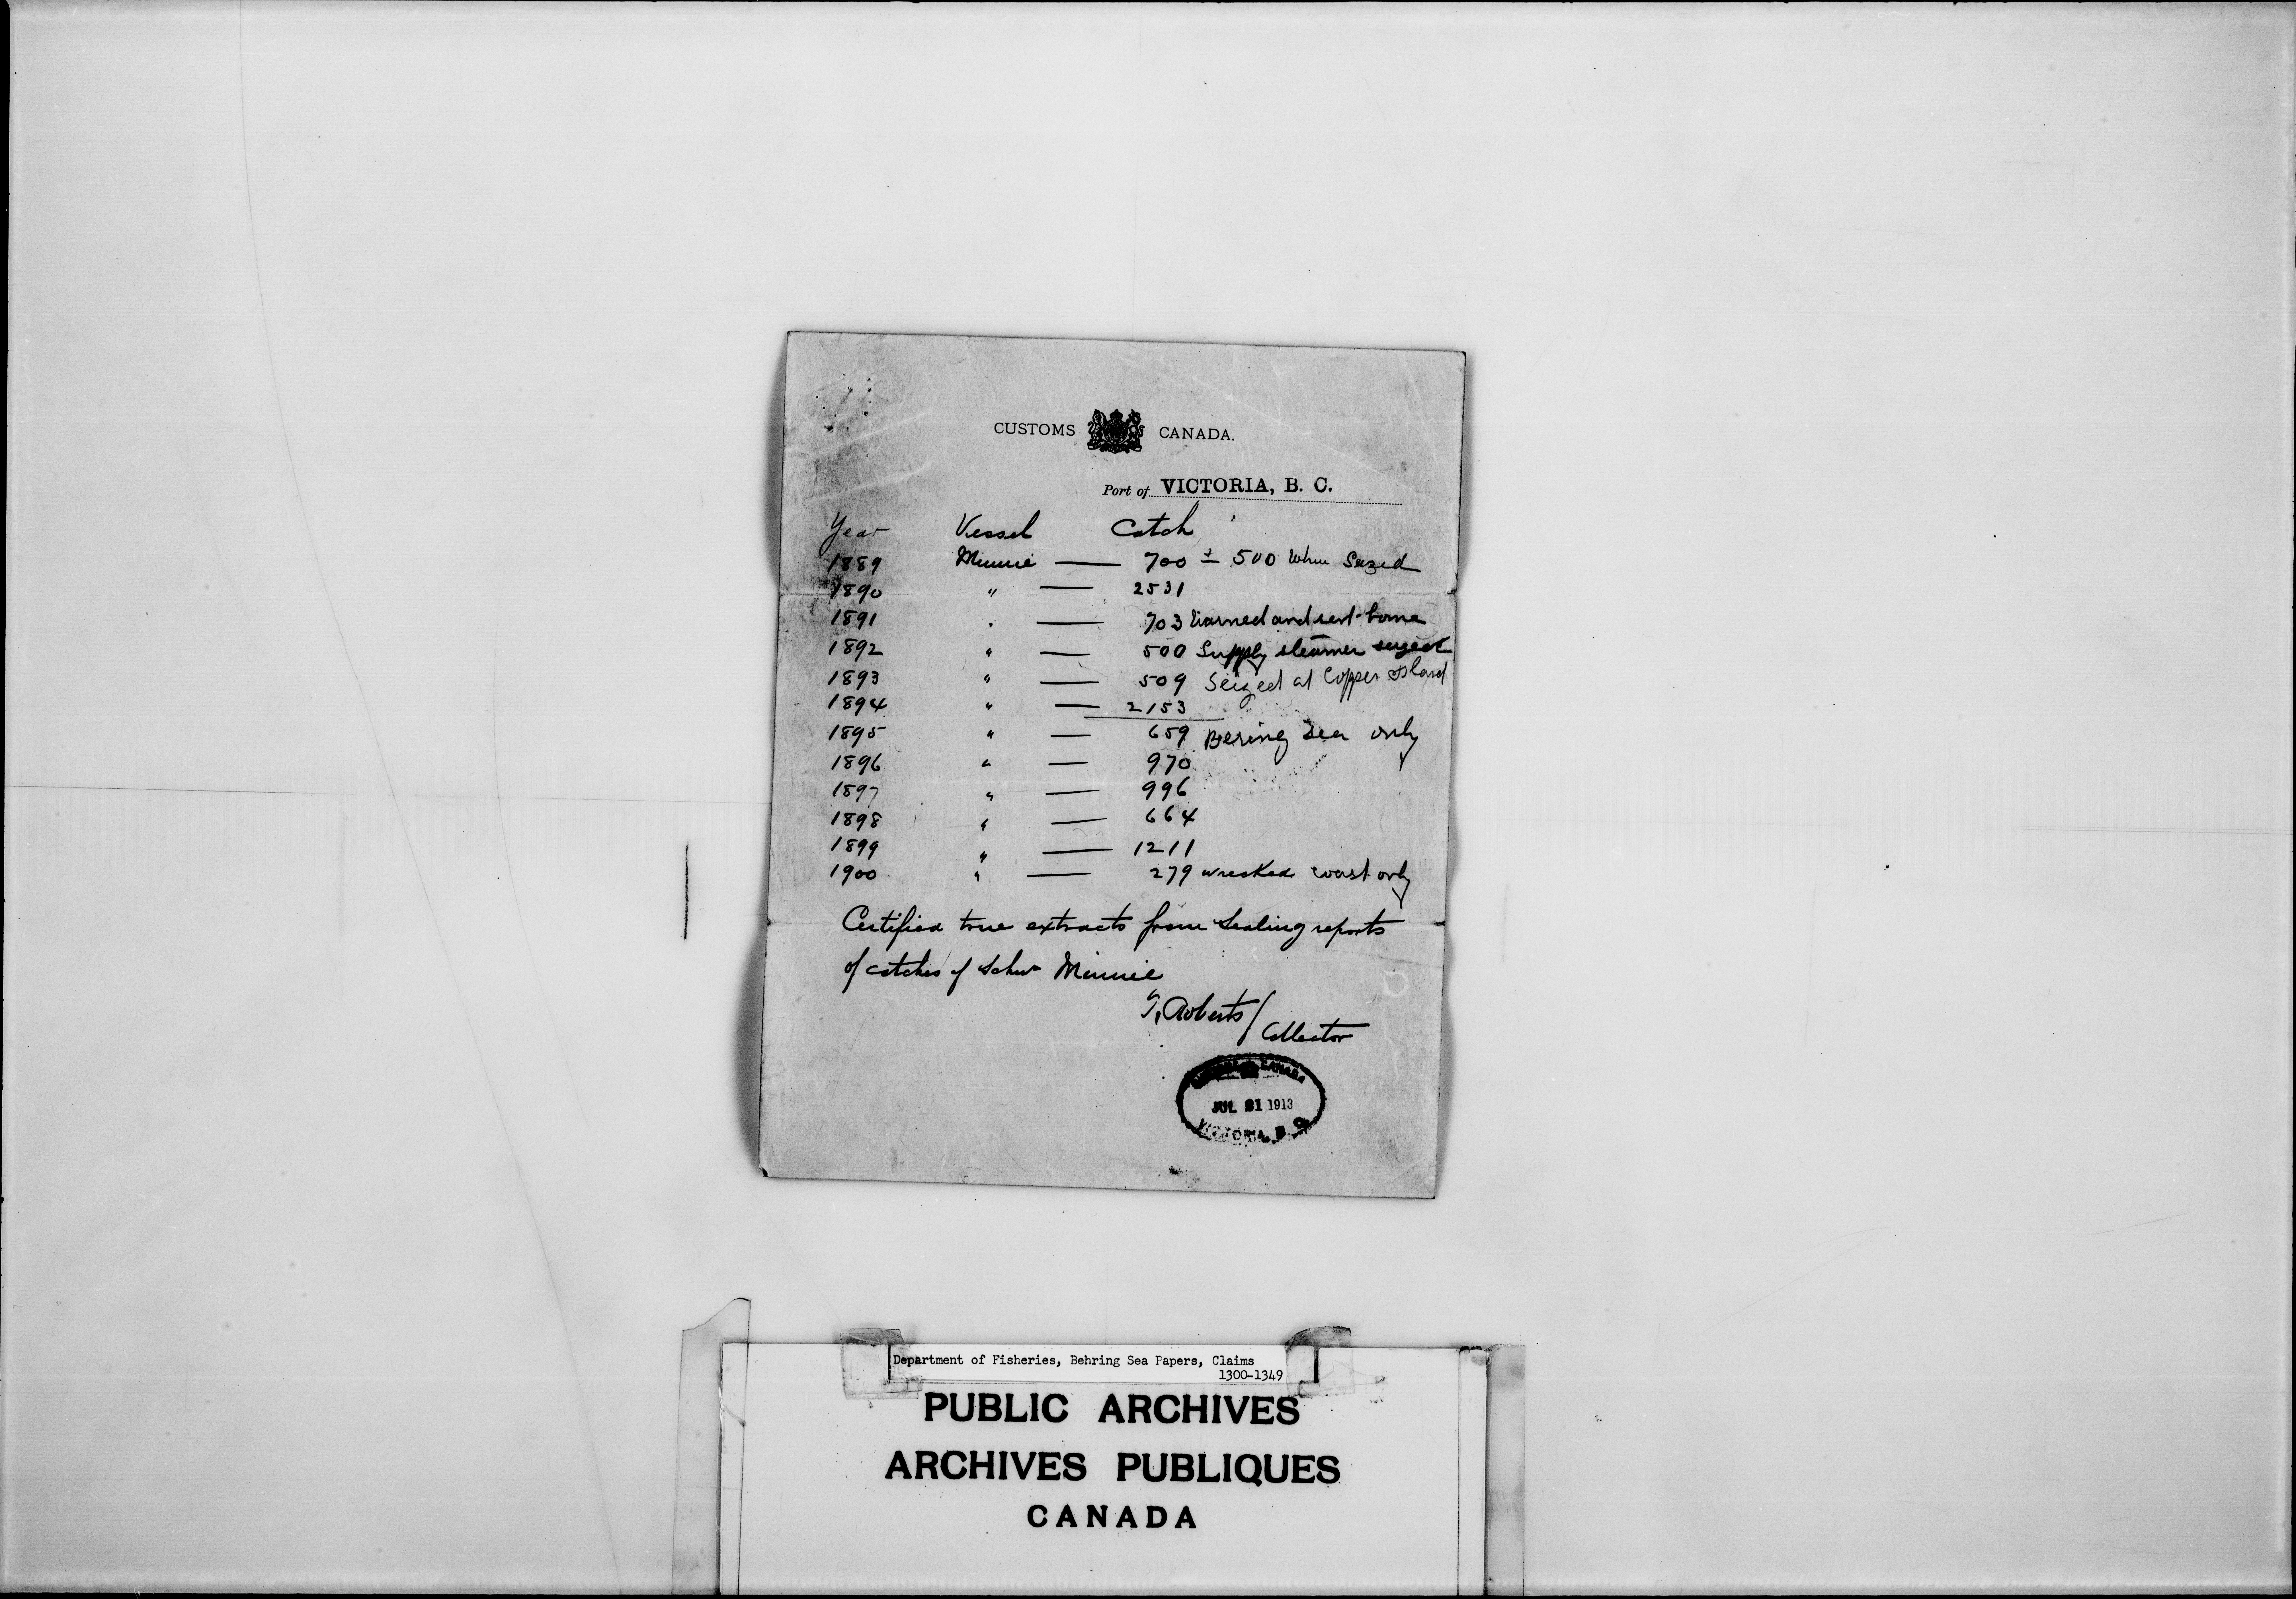 CUSTOMS CANADA.
Port of VICTORIA, B. C.
Year Vessel Catch
1889 Minnie — 700 ± 500 when Seized
1890 " — 2531
1891 " — 703 Warned and sent home
1892 " — 500 Supply steamer seized
1893 " — 509 Seized at Copper Island
1894 " — 2153
1895 " — 659 Bering Sea only
1896 " — 970
1897 " — 996
1898 " — 664
1899 " — 1211
1900 " — 279 wrecked coast only
Certified true extracts from Sealing reports
of catches of Schr Minnie
Roberts/
Collector
CANADA
JUL 1913
VICTORIA, B. C.
Department of Fisheries, Behring Sea Papers, Claims
1300-1349
PUBLIC ARCHIVES
ARCHIVES PUBLIQUES
CANADA